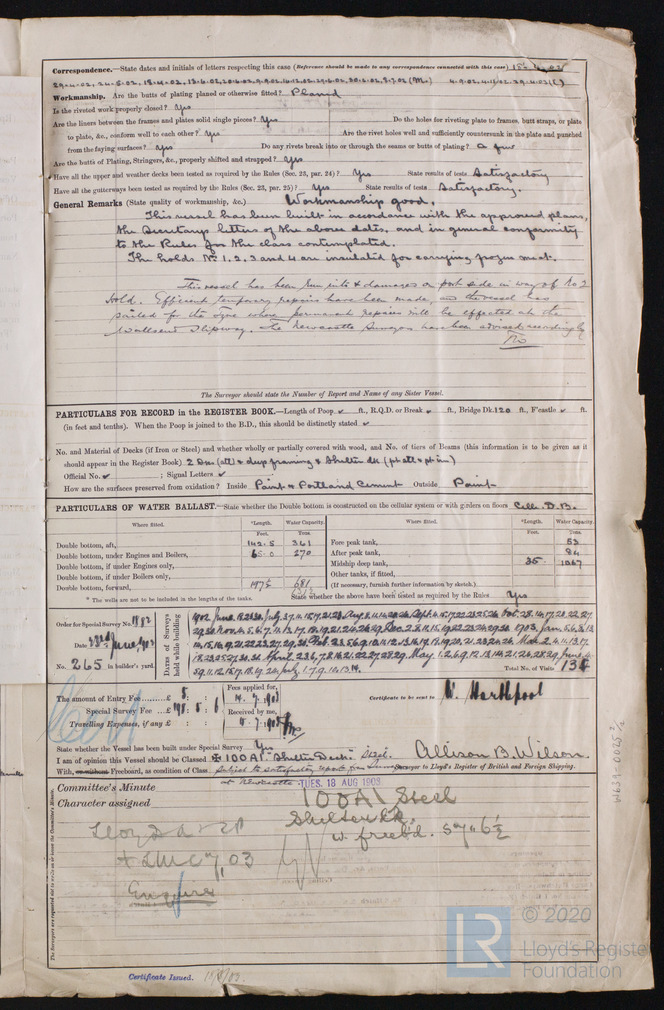 Correspondence.—State dates and initials of letters respecting this case (Reference should be made to any correspondence connected with this case)
Workmanship. Are the butts of plating planed or otherwise fitted? Planed
Is the riveted work properly closed? Yes
Are the liners between the frames and plates solid single pieces? Yes Do the holes for riveting plate to frames, butt straps, or plate
to plate, &c., conform well to each other? Yes Are the rivet holes well and sufficiently countersunk in the plate and punched
from the faying surfaces? Yes Do any rivets break into or through the seams or butts of plating? a few
Are the butts of Plating, Stringers, &c., properly shifted and strapped? Yes
Have all the upper and weather decks been tested as required by the Rules (Sec. 23, par. 24)? Yes State results of tests Satisfactory
Have all the gutterways been tested as required by the Rules (Sec. 23, par. 25)? Yes State results of tests Satisfactory.
General Remarks (State quality of workmanship, &c.) Workmanship good.
This vessel has been built in accordance with the approved plans,
the Secretarys letters of the above dates, and in general conformity
to the Rules for the class contemplated.
The holds No 1, 2, 3 and 4 are insulated for carrying frozen meat.
This vessel has been run into & damaged on port side in way of No 2
hold. Efficient temporary repairs have been made, and the vessel has
sailed for the Tyne where permanent repairs will be effected at the
Wallsend Slipway. The Newcastle Surveyors have been advised accordingly
The Surveyor should state the Number of Report and Name of any Sister Vessel.
PARTICULARS FOR RECORD in the REGISTER BOOK.—Length of Poop ✓ ft., R.Q.D. or Break ✓ ft., Bridge Dk. 120 ft., F'castle ✓ ft.
(in feet and tenths). When the Poop is joined to the B.D., this should be distinctly stated ✓
No. and Material of Decks (if Iron or Steel) and whether wholly or partially covered with wood, and No. of tiers of Beams (this information is to be given as it
should appear in the Register Book) 2 Dks (stl) & deep framing & Shelter dk
Official No. ✓ ; Signal Letters ✓
How are the surfaces preserved from oxidation? Inside Paint & Portland Cement Outside Paint
PARTICULARS OF WATER BALLAST.—State whether the Double bottom is constructed on the cellular system or with girders on floors Cell. D.B.
Where fitted. *Length. Water Capacity. Where fitted. *Length. Water Capacity.
Feet. Tons. Feet. Tons.
Double bottom, aft, 142.5 361 Fore peak tank, 53
Double bottom, under Engines and Boilers, 65.0 270 After peak tank, 84
Double bottom, if under Engines only, Midship deep tank, 25 1067
Double bottom, if under Boilers only, Other tanks, if fitted,
Double bottom, forward, 197.5 681 (If necessary, furnish further information by sketch.)
* The wells are not to be included in the lengths of the tanks. State whether the above have been tested as required by the Rules Yes
Order for Special Survey No. 1982
Date 23rd June 1902
No. 265 in builder's yard.
Dates of Surveys held while building
Total No. of Visits
The amount of Entry Fee £ 5 : Fees applied for,
Special Survey Fee £ Received by me,
Travelling Expenses, if any £ :
Certificate to be sent to W. Hartlepool
State whether the Vessel has been built under Special Survey Yes
I am of opinion this Vessel should be Classed ✠ 100A1 "Shelter Deck"
Allison B. Wilson.
With, Freeboard, as condition of Class subject to satisfactory report from Surveyors
Surveyor to Lloyd's Register of British and Foreign Shipping.
at Newcastle
Committee's Minute TUES. 18 AUG 1903
Character assigned 100A1 Steel
Shelter Dk.
w. freeb'd. 5 7 6½
Lloyds A & CP
+ LMC 7,03
The Surveyors are requested not to write on or below the Committee's Minute.
Certificate Issued.
W639-0025 2/2
LR
© 2020
Lloyd's Register
Foundation